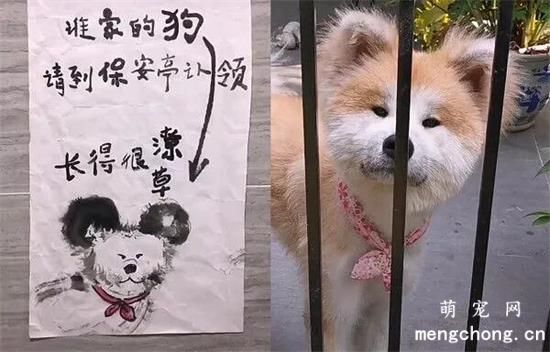 谁家的狗
请到保安亭认领
长得很潦草
萌宠网
mengchong.cn